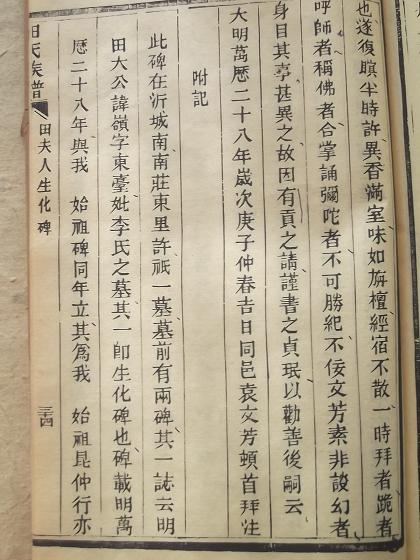 也遂復瞑半時許異香滿室味如旃檀經宿不散一時拜者跪者
呼師者稱佛者合掌誦彌陀者不可勝紀不佞文芳素非談幻者
身目其事甚異之故因有貢之請謹書之貞珉以勸善後嗣云
大明萬曆二十八年歲次庚子仲春吉日同邑袁文芳頓首拜注
附記
此碑在沂城南南莊東里許祇一墓墓前有兩碑其一誌云明
田大公諱嶺字東臺妣李氏之墓其一即生化碑也碑載明萬
曆二十八年與我 始祖碑同年立其為我 始祖昆仲行亦
田氏族譜
田夫人生化碑
三十四